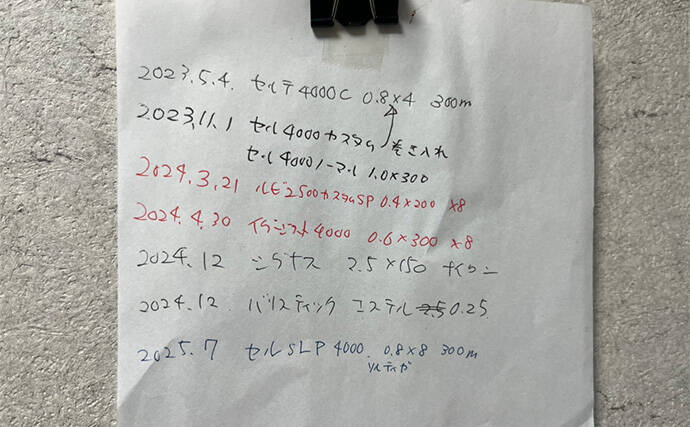 2023.5.4. セルテ4000C 0.8×4 300m
2023.11.1 セル4000カスタム 巻き入れ
セル4000ノーマル 1.0×300
2024.3.21 ルビ2500カスタムSP 0.4×200 ×8
2024.4.30 イグジスト4000 0.6×300 ×8
2024.12 シグナス 2.5×150 ナイロン
2024.12 バリスティック エステル 0.25
2025.7 セルSLP 4000 0.8×8 300m
ソルティガ